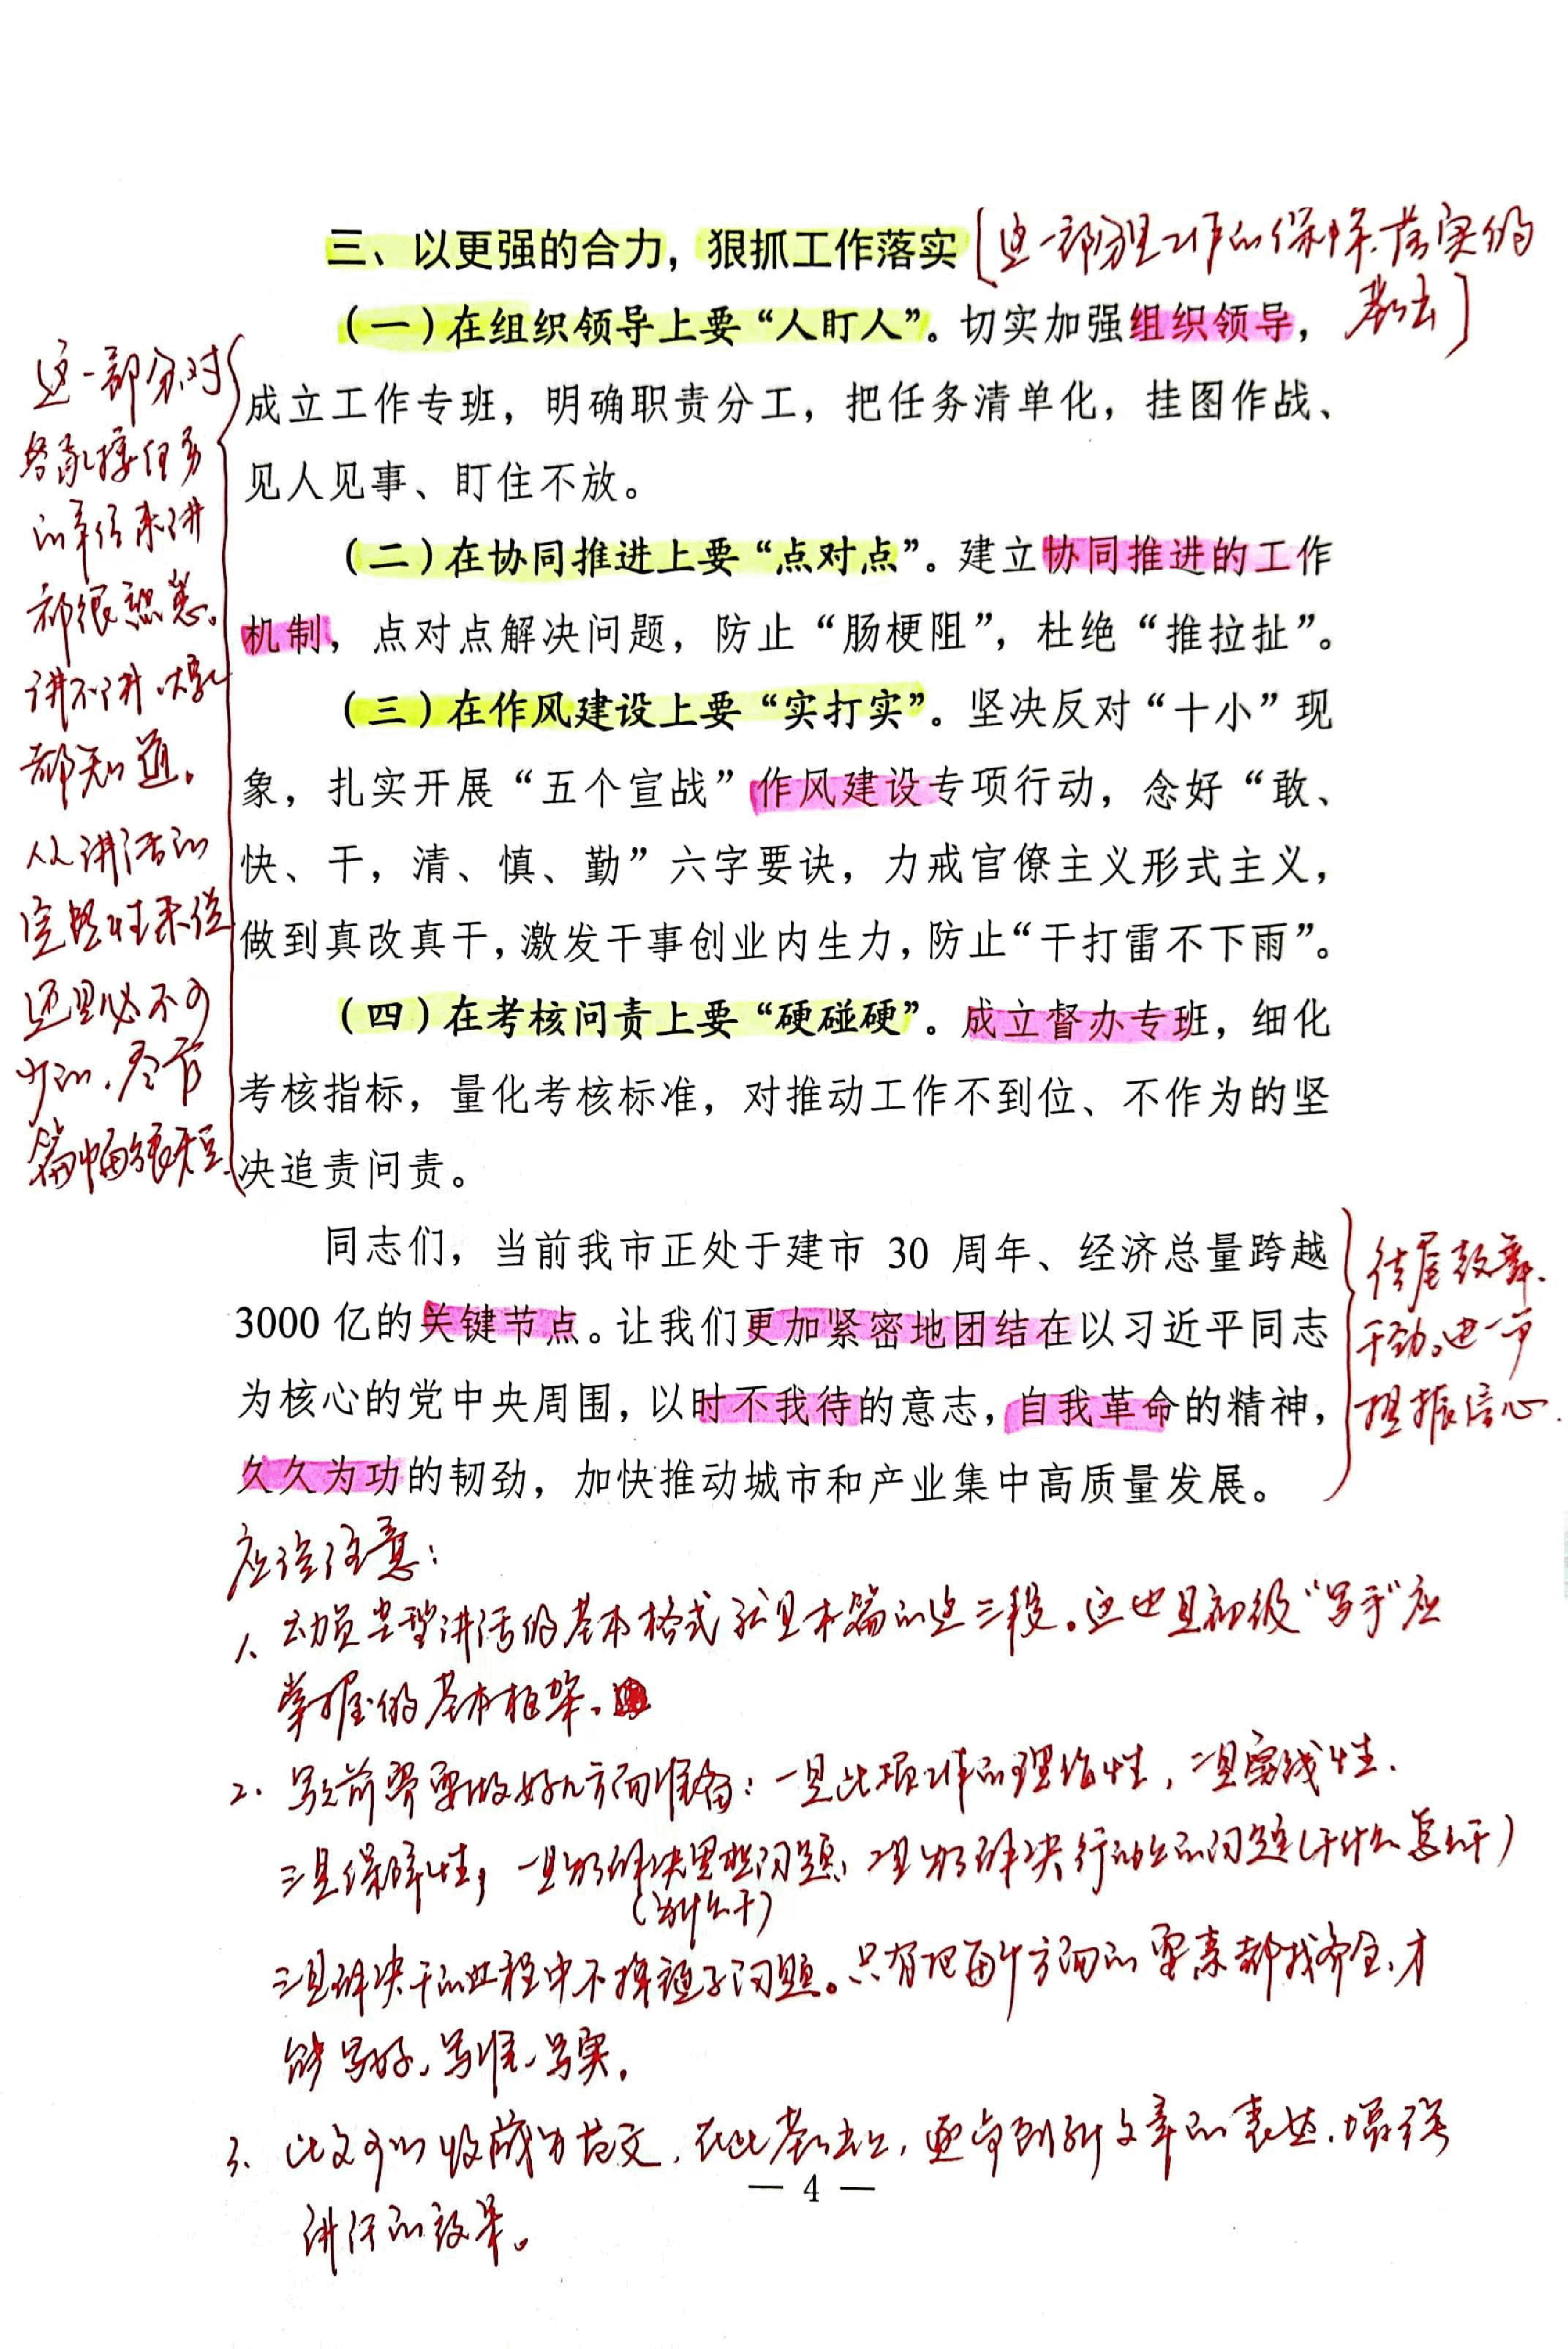 三、以更强的合力，狠抓工作落实
[这一部分是工作的保障、落实的
表述]
（一）在组织领导上要“人盯人”。切实加强组织领导，
成立工作专班，明确职责分工，把任务清单化，挂图作战、
见人见事、盯住不放。
（二）在协同推进上要“点对点”。建立协同推进的工作
机制，点对点解决问题，防止“肠梗阻”，杜绝“推拉扯”。
（三）在作风建设上要“实打实”。坚决反对“十小”现
象，扎实开展“五个宣战”作风建设专项行动，念好“敢、
快、干，清、慎、勤”六字要诀，力戒官僚主义形式主义，
做到真改真干，激发干事创业内生力，防止“干打雷不下雨”。
（四）在考核问责上要“硬碰硬”。成立督办专班，细化
考核指标，量化考核标准，对推动工作不到位、不作为的坚
决追责问责。
这一部分对
各承接任务
的单位来讲
都很熟悉。
讲不讲，大家
都知道。
从讲话的
完整性来说
还是必不可
少的，尽管
篇幅很短
同志们，当前我市正处于建市 30 周年、经济总量跨越
3000 亿的关键节点。让我们更加紧密地团结在以习近平同志
为核心的党中央周围，以时不我待的意志，自我革命的精神，
久久为功的韧劲，加快推动城市和产业集中高质量发展。
结尾鼓舞
干劲。进一步
提振信心
应该注意：
1、动员类型讲话的基本格式就是本篇的这三段。这也是初级“写手”应
掌握的基本框架。
2、写之前需要做好几方面准备：一是此项工作的理论性，二是实践性、
三是保障性；一是为解决思想问题，二是为解决行动上的问题（干什么怎么干）
（为什么干）
三是解决干的过程中不掉链子问题。只有把每个方面的要素都找齐全，才
能写好、写准、写实。
3、此文可以收藏为范文，在此基础上，逐步创新文章的表达，增强
讲话的效果。
— 4 —